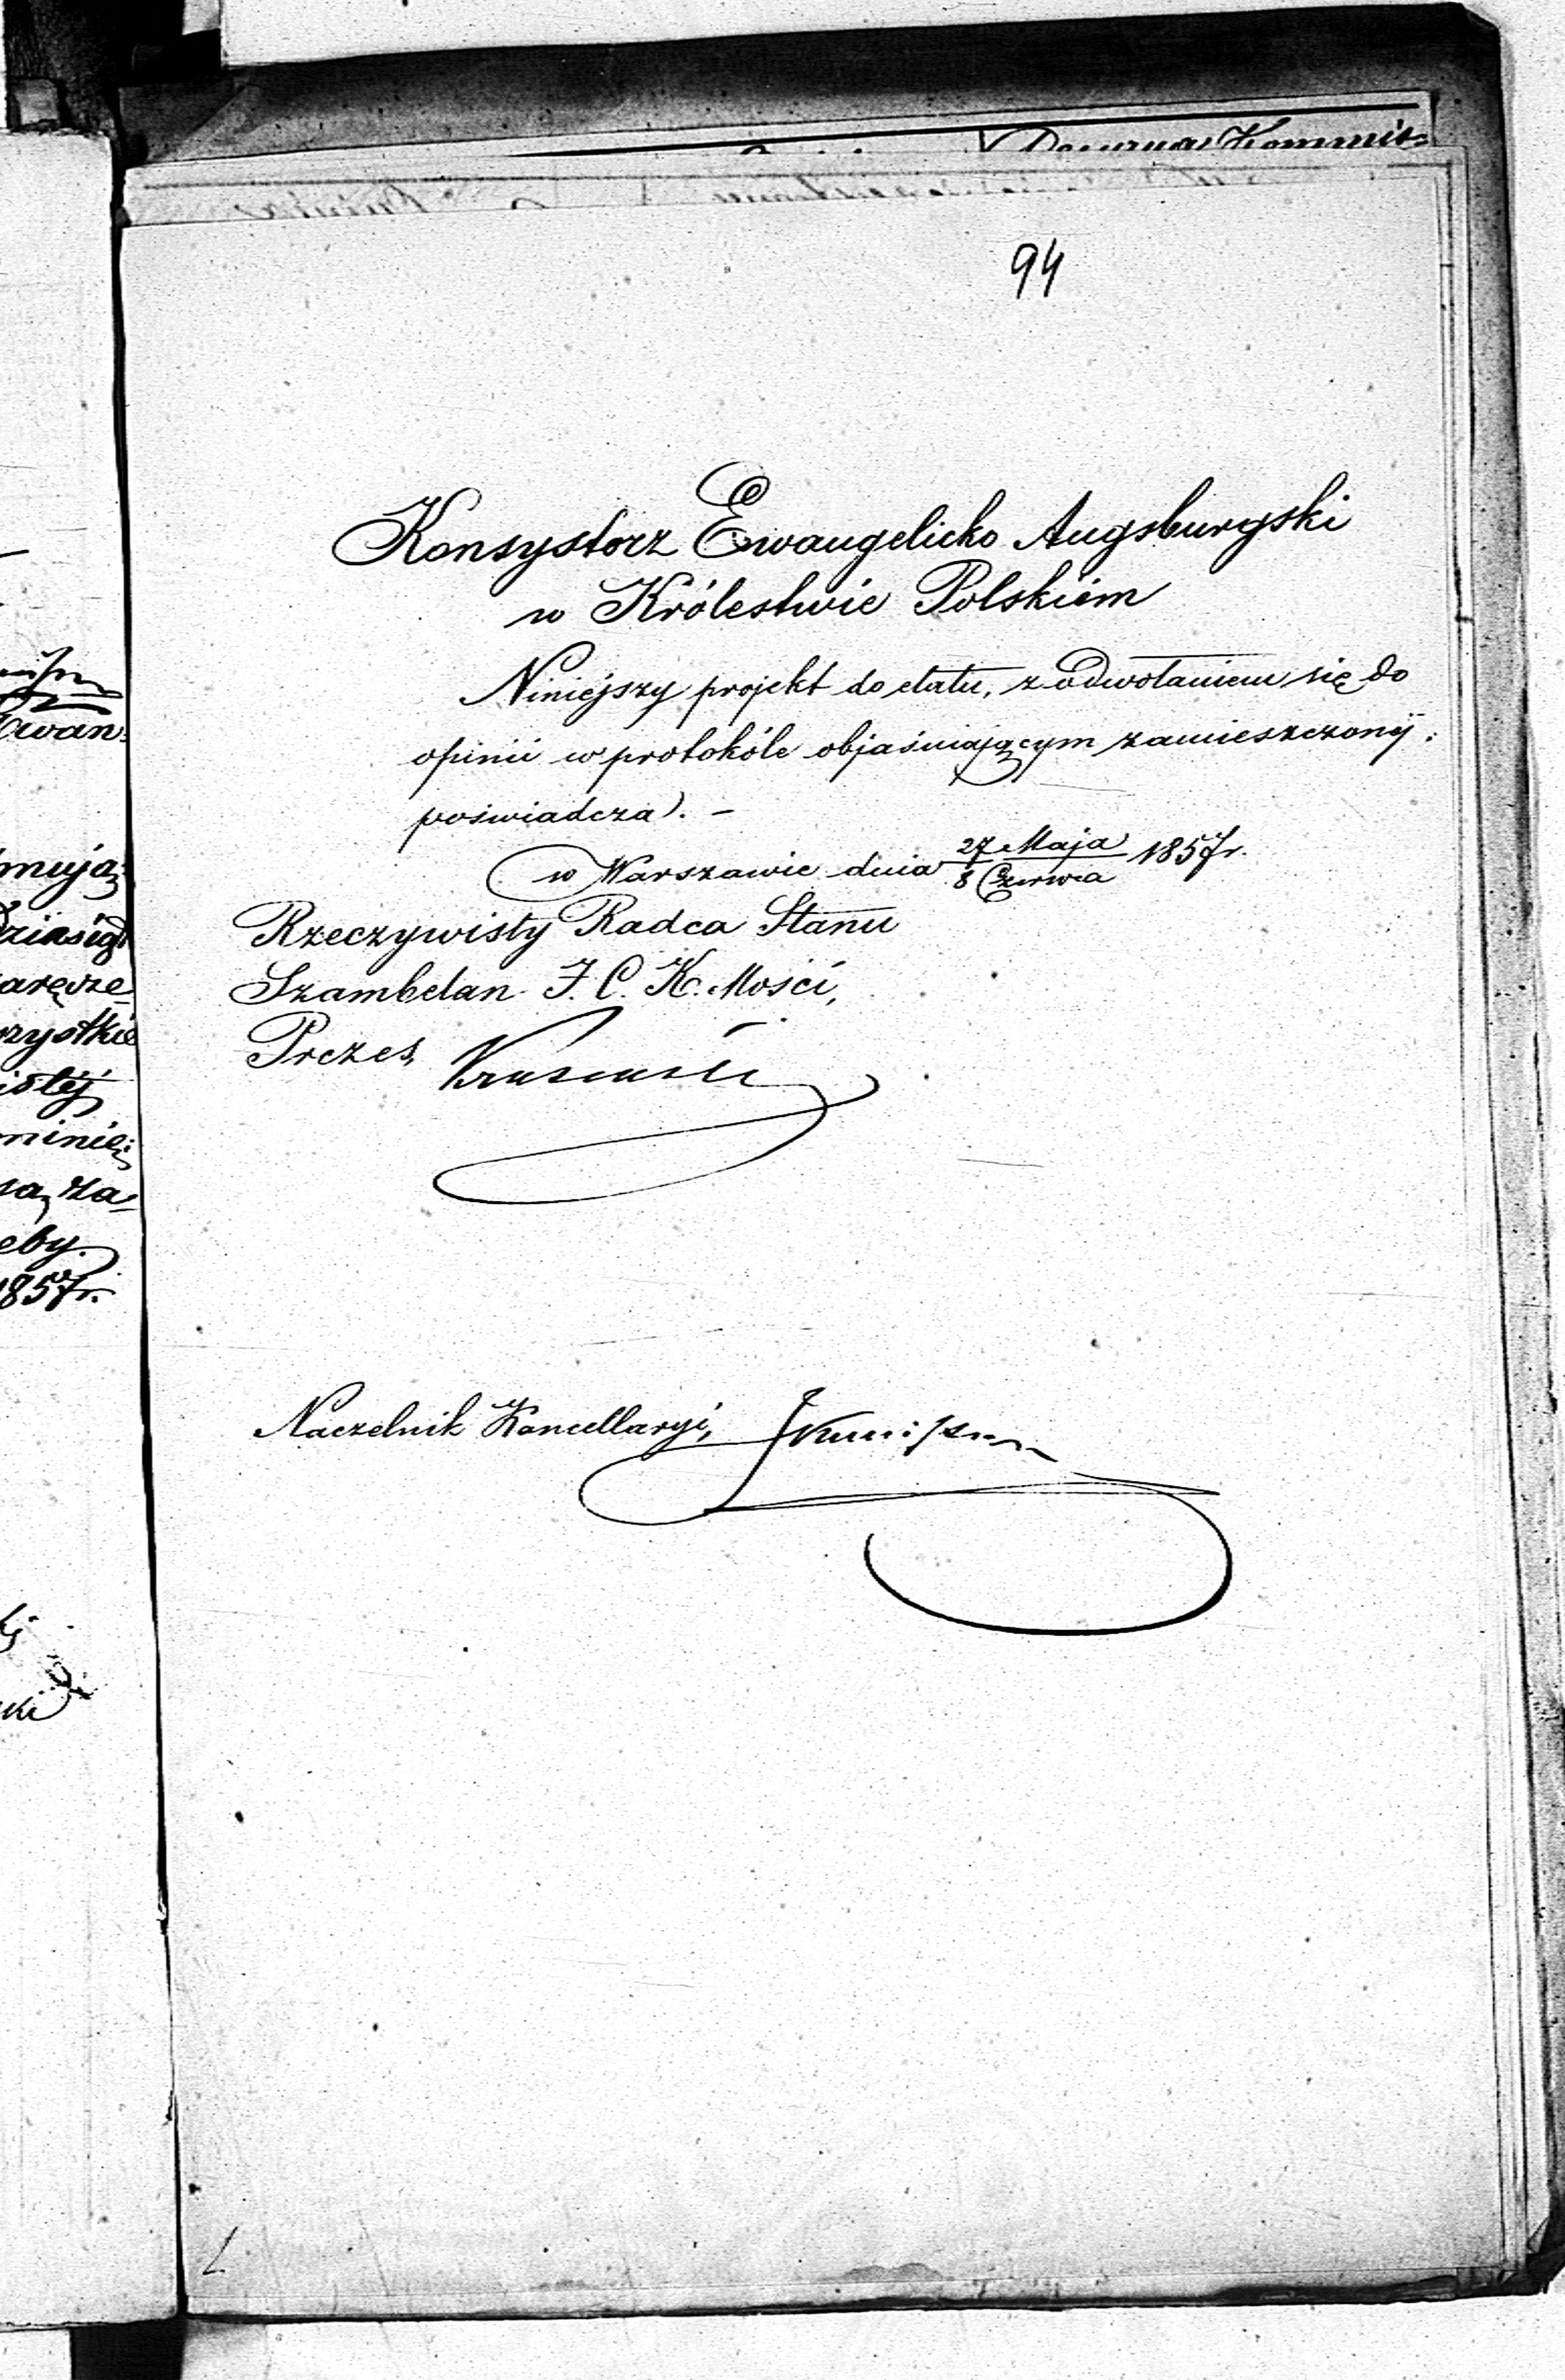 94
Konsystorz Ewangelicko Augsburgski
w Królestwie Polskiém
Niniejszy projekt do etatu, z odwołaniem się do
opinii w protokóle objaśniającym zamieszczonéj,
poświadcza. –
w Warszawie dnia 27 Maja / 8 Czerwca 1857 r.
Rzeczywisty Radca Stanu
Szambelan J. C. K. Mości,
Prezes,
Naczelnik Kancellaryi,
mują
rzystkie
istéj
eby.
1857 r.